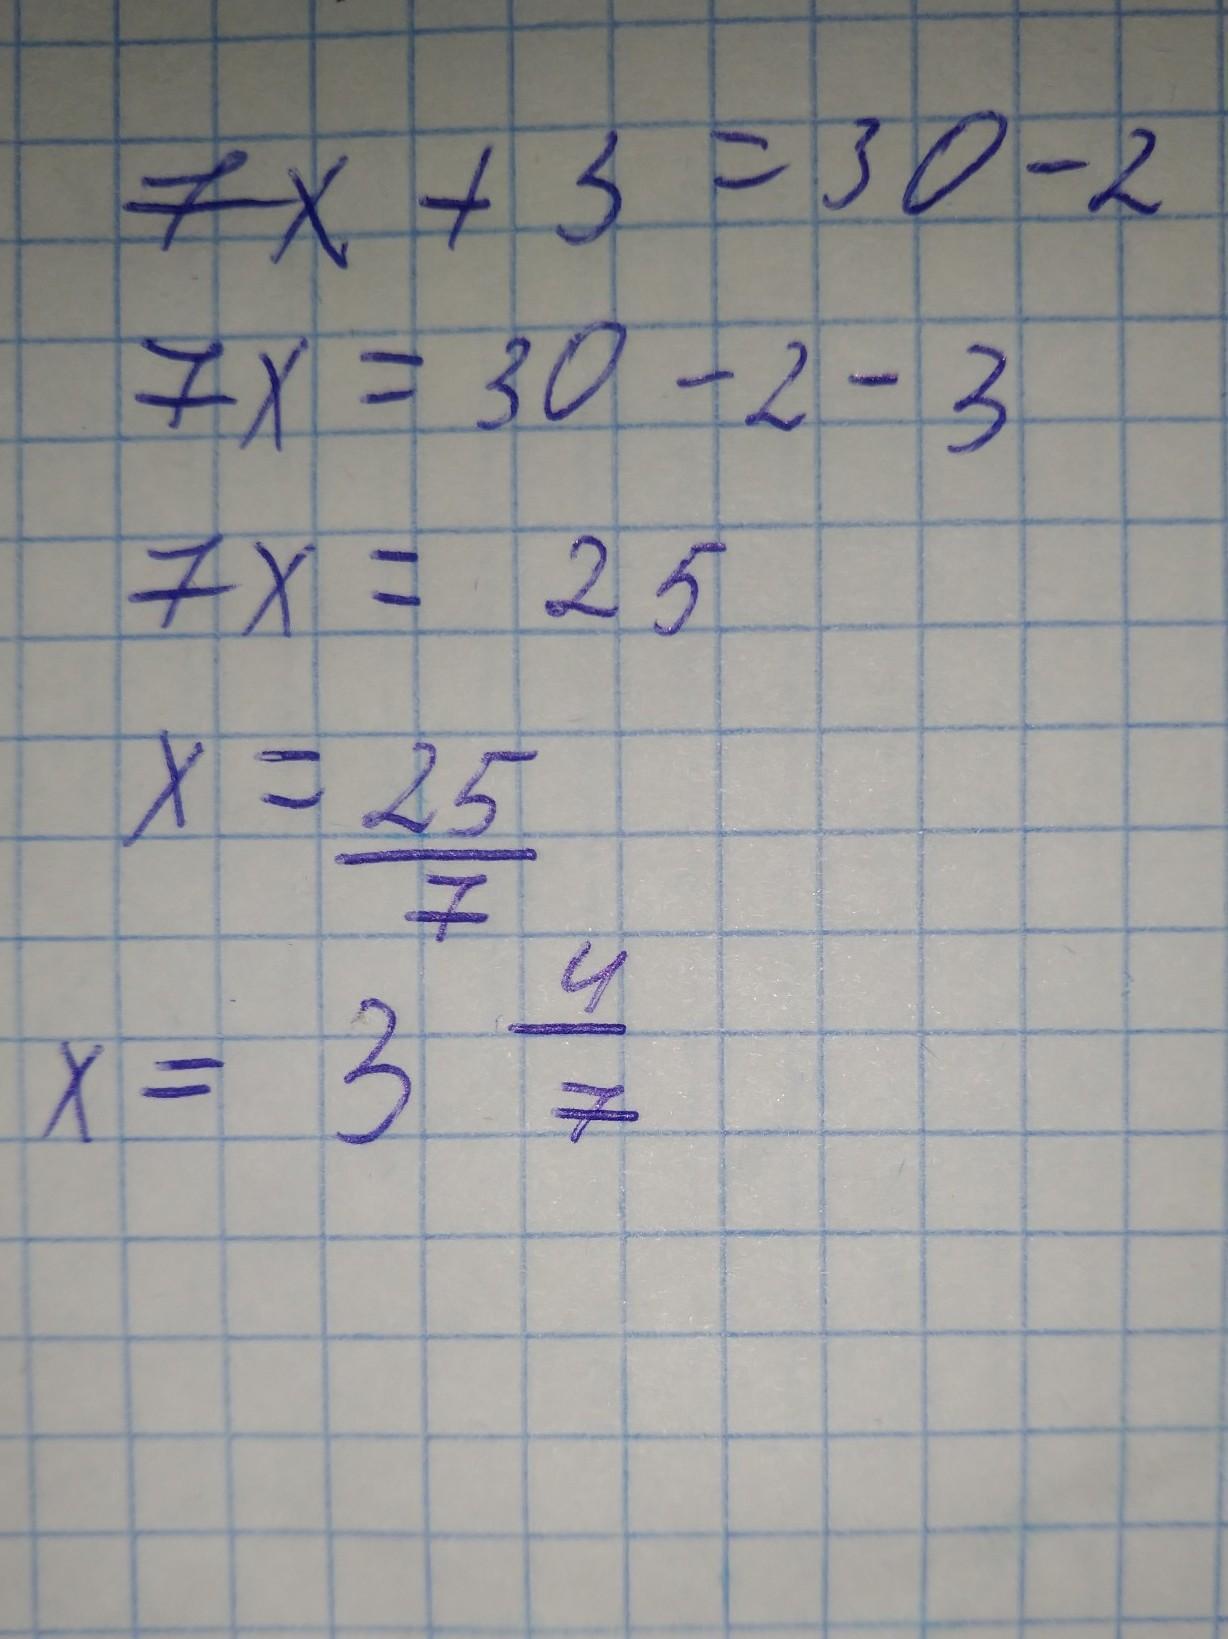 7x + 3 = 30 - 2
7x = 30 - 2 - 3
7x = 25
x = 25/7
x = 3 4/7